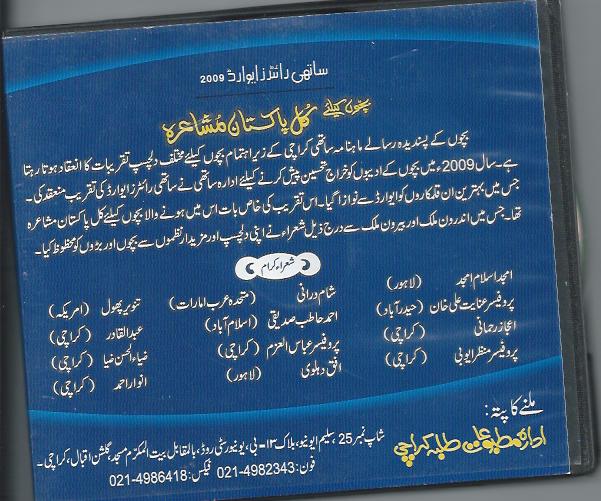 ساتھی رائٹرز ایوارڈ 2009
بچوں کیلئے کُل پاکستان مُشاعرہ
بچوں کے پسندیدہ رسالے ماہنامہ ساتھی کراچی کے زیر اہتمام بچوں کیلئے مختلف دلچسپ تقریبات کا انعقاد ہوتا رہتا
ہے۔ سال 2009ء میں بچوں کے ادیبوں کو خراج تحسین پیش کرنے کیلئے ادارہ ساتھی نے ساتھی رائٹرز ایوارڈ کی تقریب منعقد کی۔
جس میں بہترین ان قلمکاروں کو ایوارڈ سے نوازا گیا۔ اس تقریب کی خاص بات اس میں ہونے والا بچوں کیلئے کل پاکستان مشاعرہ
تھا۔ جس میں اندرون ملک اور بیرون ملک سے درج ذیل شعراء نے اپنی دلچسپ اور مزیدار نظموں سے بچوں اور بڑوں کو محظوظ کیا۔
شعراء کرام
امجد اسلام امجد (لاہور) شام درانی (متحدہ عرب امارات) تنویر پھول (امریکہ)
پروفیسر عنایت علی خان (حیدرآباد) احمد حاطب صدیقی (اسلام آباد) عبدالقادر (کراچی)
اعجاز رحمانی (کراچی) پروفیسر عباس العزم (کراچی) ضیاء الحسن ضیا (کراچی)
پروفیسر منظر ایوبی (کراچی) افق دہلوی (لاہور) انوار احمد (کراچی)
ملنے کا پتہ:
ادارہ مطبوعات طلبہ کراچی
شاپ نمبر 25 سلیم ایونیو، بلاک ۱۳-بی، یونیورسٹی روڈ، بالمقابل بیت المکرم مسجد گلشن اقبال، کراچی۔
فون: 021-4982343 فیکس: 021-4986418